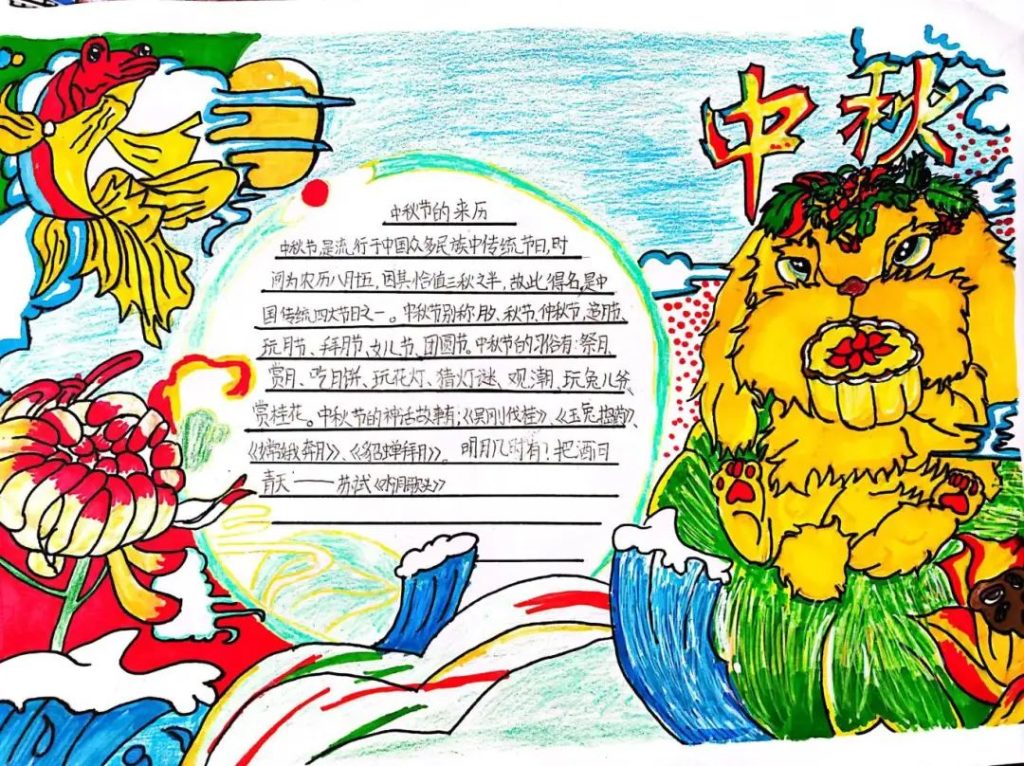 中秋
中秋节的来历
中秋节,是流行于中国众多民族中传统节日,时
间为农历八月十五,因其恰值三秋之半,故此得名,是中
国传统四大节日之一。中秋节别称月夕、秋节、仲秋节、追月节、
玩月节、拜月节、女儿节、团圆节。中秋节的习俗有:祭月
赏月、吃月饼、玩花灯、猜灯谜、观潮、玩兔儿爷、
赏桂花。中秋节的神话故事有;《吴刚伐桂》、《玉兔捣药》、
《嫦娥奔月》、《貂蝉拜月》。明月几时有!把酒问
青天——苏轼《水调歌头》